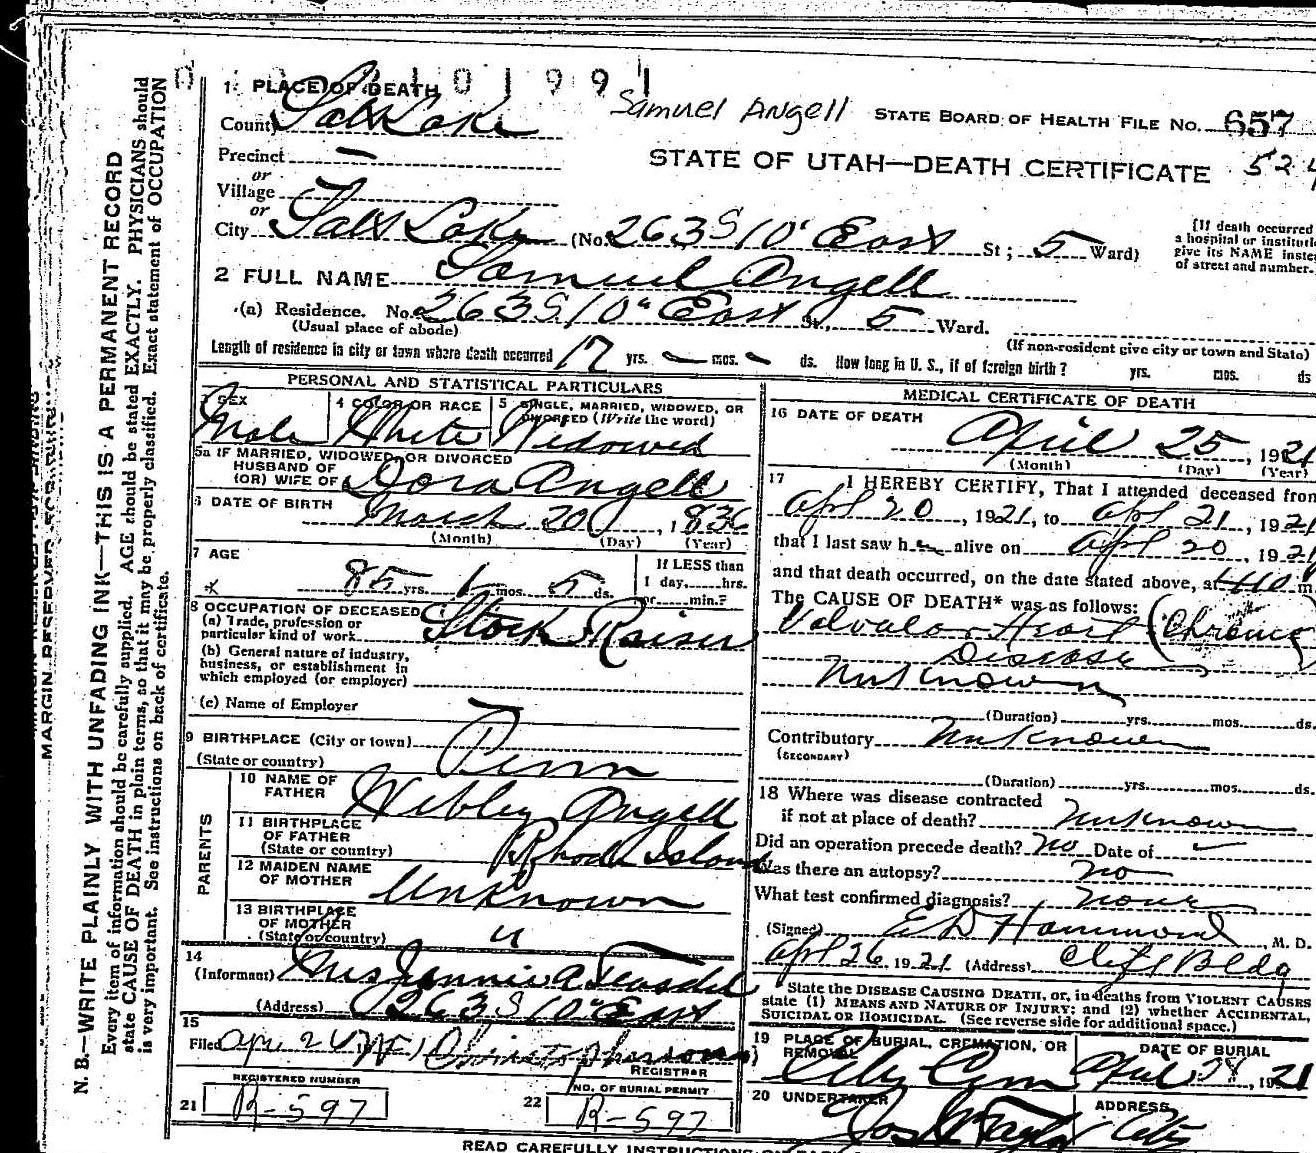 1 PLACE OF DEATH
Samuel Angell
STATE BOARD OF HEALTH FILE No. 657
County Salt Lake
STATE OF UTAH—DEATH CERTIFICATE 524
Precinct —
or
Village
or
City Salt Lake (No. 263 S 10" East St; 5 Ward)
(If death occurred
a hospital or institut
give its NAME inste
of street and number.
2 FULL NAME Samuel Angell
(a) Residence. No. 263 S 10" East St., 5 Ward.
(Usual place of abode)
(If non-resident give city or town and State)
Length of residence in city or town where death occurred 17 yrs. — mos. — ds. How long in U. S., if of foreign birth? yrs. mos. ds
PERSONAL AND STATISTICAL PARTICULARS
3 SEX
Male
4 COLOR OR RACE
White
5 SINGLE, MARRIED, WIDOWED, OR
DIVORCED (Write the word)
Widowed
5a IF MARRIED, WIDOWED, OR DIVORCED
HUSBAND OF
(OR) WIFE OF Dora Angell
6 DATE OF BIRTH March 20, 1836
(Month) (Day) (Year)
7 AGE
85 yrs. 1 mos. 5 ds.
If LESS than
1 day,......hrs.
or......min.?
8 OCCUPATION OF DECEASED
(a) Trade, profession or
particular kind of work Stock Raiser
(b) General nature of industry,
business, or establishment in
which employed (or employer)
(c) Name of Employer
9 BIRTHPLACE (City or town)
(State or country) Penn
PARENTS
10 NAME OF
FATHER Wibley Angell
11 BIRTHPLACE
OF FATHER
(State or country) Rhode Island
12 MAIDEN NAME
OF MOTHER Unknown
13 BIRTHPLACE
OF MOTHER
(State or country) "
14
(Informant) Mrs Jennie A Teasdel
(Address) 263 S 10" East
15
Filed
REGISTRAR
REGISTERED NUMBER
21 R-597
NO. OF BURIAL PERMIT
22 R-597
MEDICAL CERTIFICATE OF DEATH
16 DATE OF DEATH
April 25, 1921
(Month) (Day) (Year)
17 I HEREBY CERTIFY, That I attended deceased from
Apl 20, 1921, to Apl 21, 1921
that I last saw h alive on Apl 20 1921
and that death occurred, on the date stated above, at 4 10 m.
The CAUSE OF DEATH* was as follows:
Valvular Heart (Chronic)
Disease
Unknown
(Duration) yrs. mos. ds.
Contributory Unknown
(SECONDARY)
(Duration) yrs. mos. ds.
18 Where was disease contracted
if not at place of death? Unknown
Did an operation precede death? No Date of
Was there an autopsy? no
What test confirmed diagnosis? none
(Signed) E D Hammond, M. D.
Apl 26 1921 (Address) Clift Bldg
State the DISEASE CAUSING DEATH, or, in deaths from VIOLENT CAUSES
state (1) MEANS AND NATURE OF INJURY; and (2) whether ACCIDENTAL,
SUICIDAL OR HOMICIDAL. (See reverse side for additional space.)
19 PLACE OF BURIAL, CREMATION, OR
REMOVAL
City Cem
DATE OF BURIAL
April 28, 1921
20 UNDERTAKER
Jos Wm Taylor
ADDRESS
City
READ CAREFULLY INSTRUCTIONS ON
MARGIN RESERVED
N. B.—WRITE PLAINLY WITH UNFADING INK—THIS IS A PERMANENT RECORD
Every item of information should be carefully supplied. AGE should be stated EXACTLY. PHYSICIANS should
state CAUSE OF DEATH in plain terms, so that it may be properly classified. Exact statement of OCCUPATION
is very important. See instructions on back of certificate.